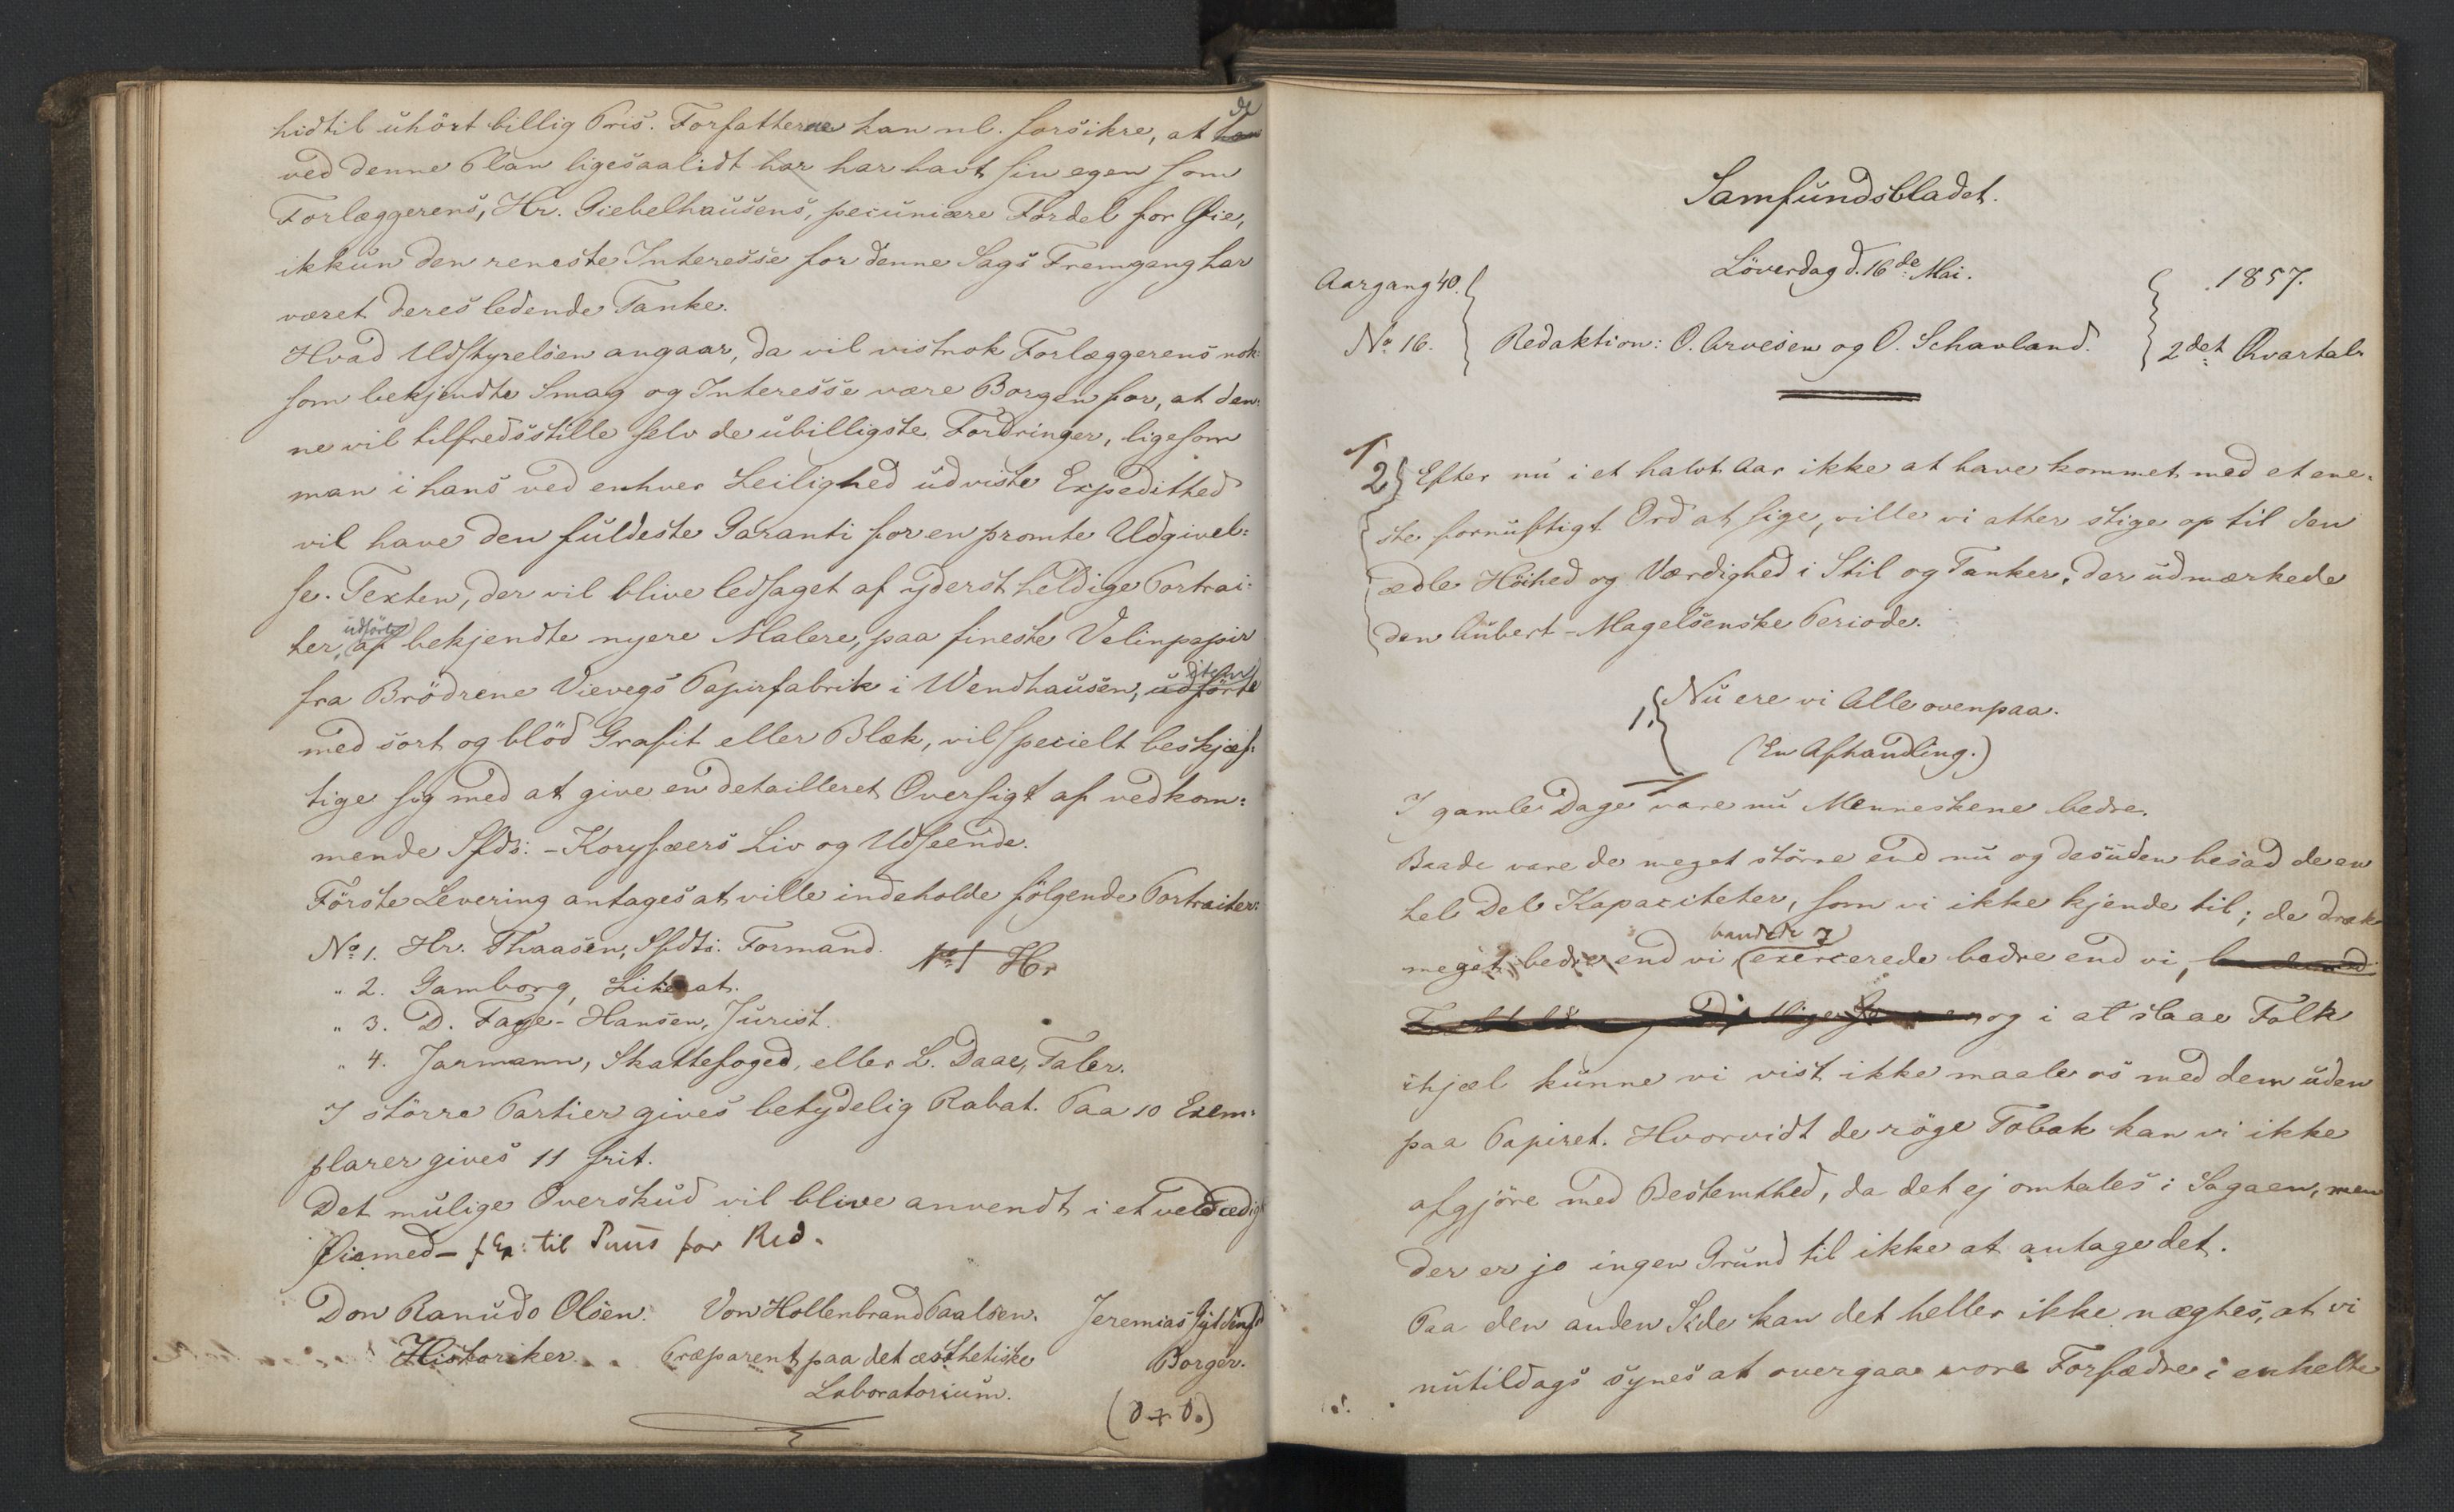 hidtil uhört billig Pris. Forfatterne kan nl. forsikre, at de
ved denne Plan ligesaalidt har har havt sin egen som
Forlæggerens, Hr. Giebelhausens, pecuniære Fordel for Øie,
ikkun den reneste Interesse for denne Sags Fremgang har
været deres ledende Tanke.
Hvad Udstyrelsen angaar, da vil vistnok Forlæggerens nok:
som bekjendte Smag og Interesse være Borgen for, at den:
ne vil tilfredsstille selv de ubilligste Fordringer, ligesom
man i hans ved enhver Leilighed udviste Expedithed
vil have den fuldeste Garanti for en promte Udgivel:
se. Texten, der vil blive ledsaget af yderst heldige Portrai:
ter, udförte af bekjendte nyere Malere, paa fineste Velinpapir
fra Brödrene Viewegs Papirfabrik i Wendhausen, udförte
med sort og blöd Grafit eller Blæk, vil specielt beskjæf:
tige sig med at give en detailleret Oversigt af vedkom:
mende Sfds:-Koryfæers Liv og Udseende.
Förste Levering antages at ville indeholde fölgende Portraiter:
No 1. Hr. Thaasen, Sfdts. Formand. No 1 Hr
" 2. Gamborg, Literat.
" 3. D. Faye-Hansen, Jurist.
" 4. Jarmann, Skattefoged, eller L. Daae, Taler.
I större Partier gives betydelig Rabat. Paa 10 Exem:
plarer gives 11 frit.
Det mulige Overskud vil blive anvendt i et veldædigt
Øiemed- f Ex: til Puns for Red.
Don Ranudo Olsen. Von Hollenbrand Paalsen. Jeremias
Historiker. Præparent paa det æsthetiske Borger.
Laboratorium.
(d+d.)
Samfundsbladet.
Löverdag d. 16de Mai.
Aargang 40. 1857.
No 16. Redaktion: O. Arvesen og O. Schavland. 2det Qvartal.
2 Efter nu i et halvt Aar ikke at have kommet med et ene:
ste fornuftigt Ord at sige, ville vi atter stige op til den
ædle Höihed og Værdighed i Stil og Tanker, der udmærkede
den Aubert-Magelsenske Periode.
1. Nu ere vi Alle ovenpaa.
(En Afhandling.)
I gamle Dage vare nu Menneskene bedre.
Baade vare de meget större end nu og desuden besad de en
hel Del Kapaciteter, som vi ikke kjende til; de drak
meget bedre end vi bandede exercerede bedre end vi,
og i at slaae Folk
ihjæl kunne vi vist ikke maale os med dem uden
paa Papiret. Hvorvidt de röge Tobak kan vi ikke
afgjöre med Bestemthed, da det ej omtales i Sagaen, men
der er jo ingen Grund til ikke at antage det.
Paa den anden Side kan det heller ikke nægtes, at vi
nutildags synes at overgaa vore Forfædre i enkelte